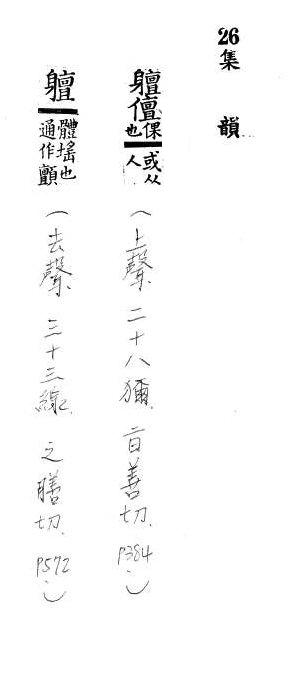 26集 韻
䡀儃倮也或从人(上聲.二十八獮.旨善切.P384.)
䡀體搖也通作顫(去聲.三十三線.之膳切.P572.)